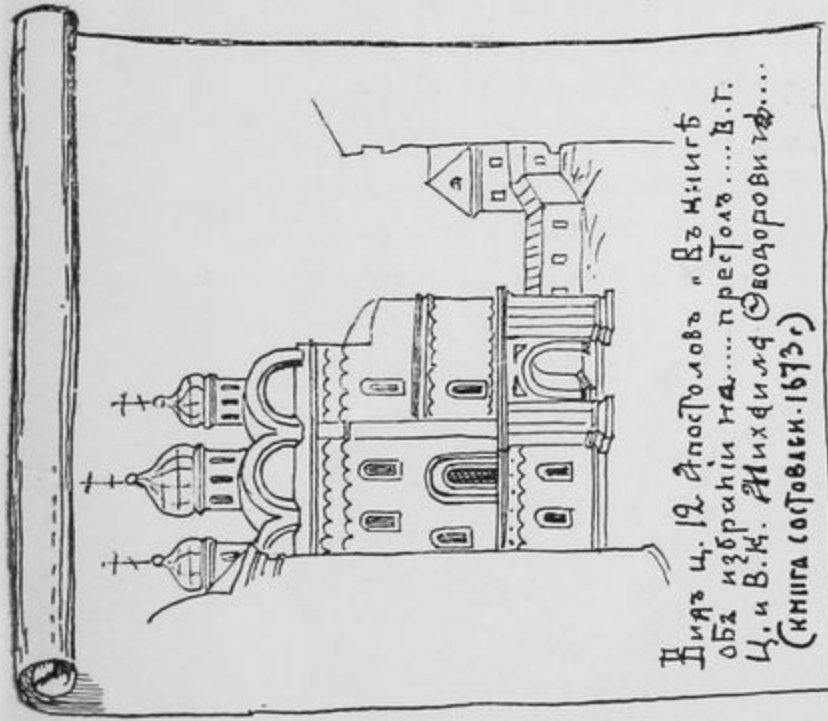 Видъ ц. 12 Апостоловъ „ Въ книгѣ
объ избраніи на.... престолъ.... В.Г.
Ц. и В.К. Михаила Ѳеодоровича....
(книга составлен. 1673 г)